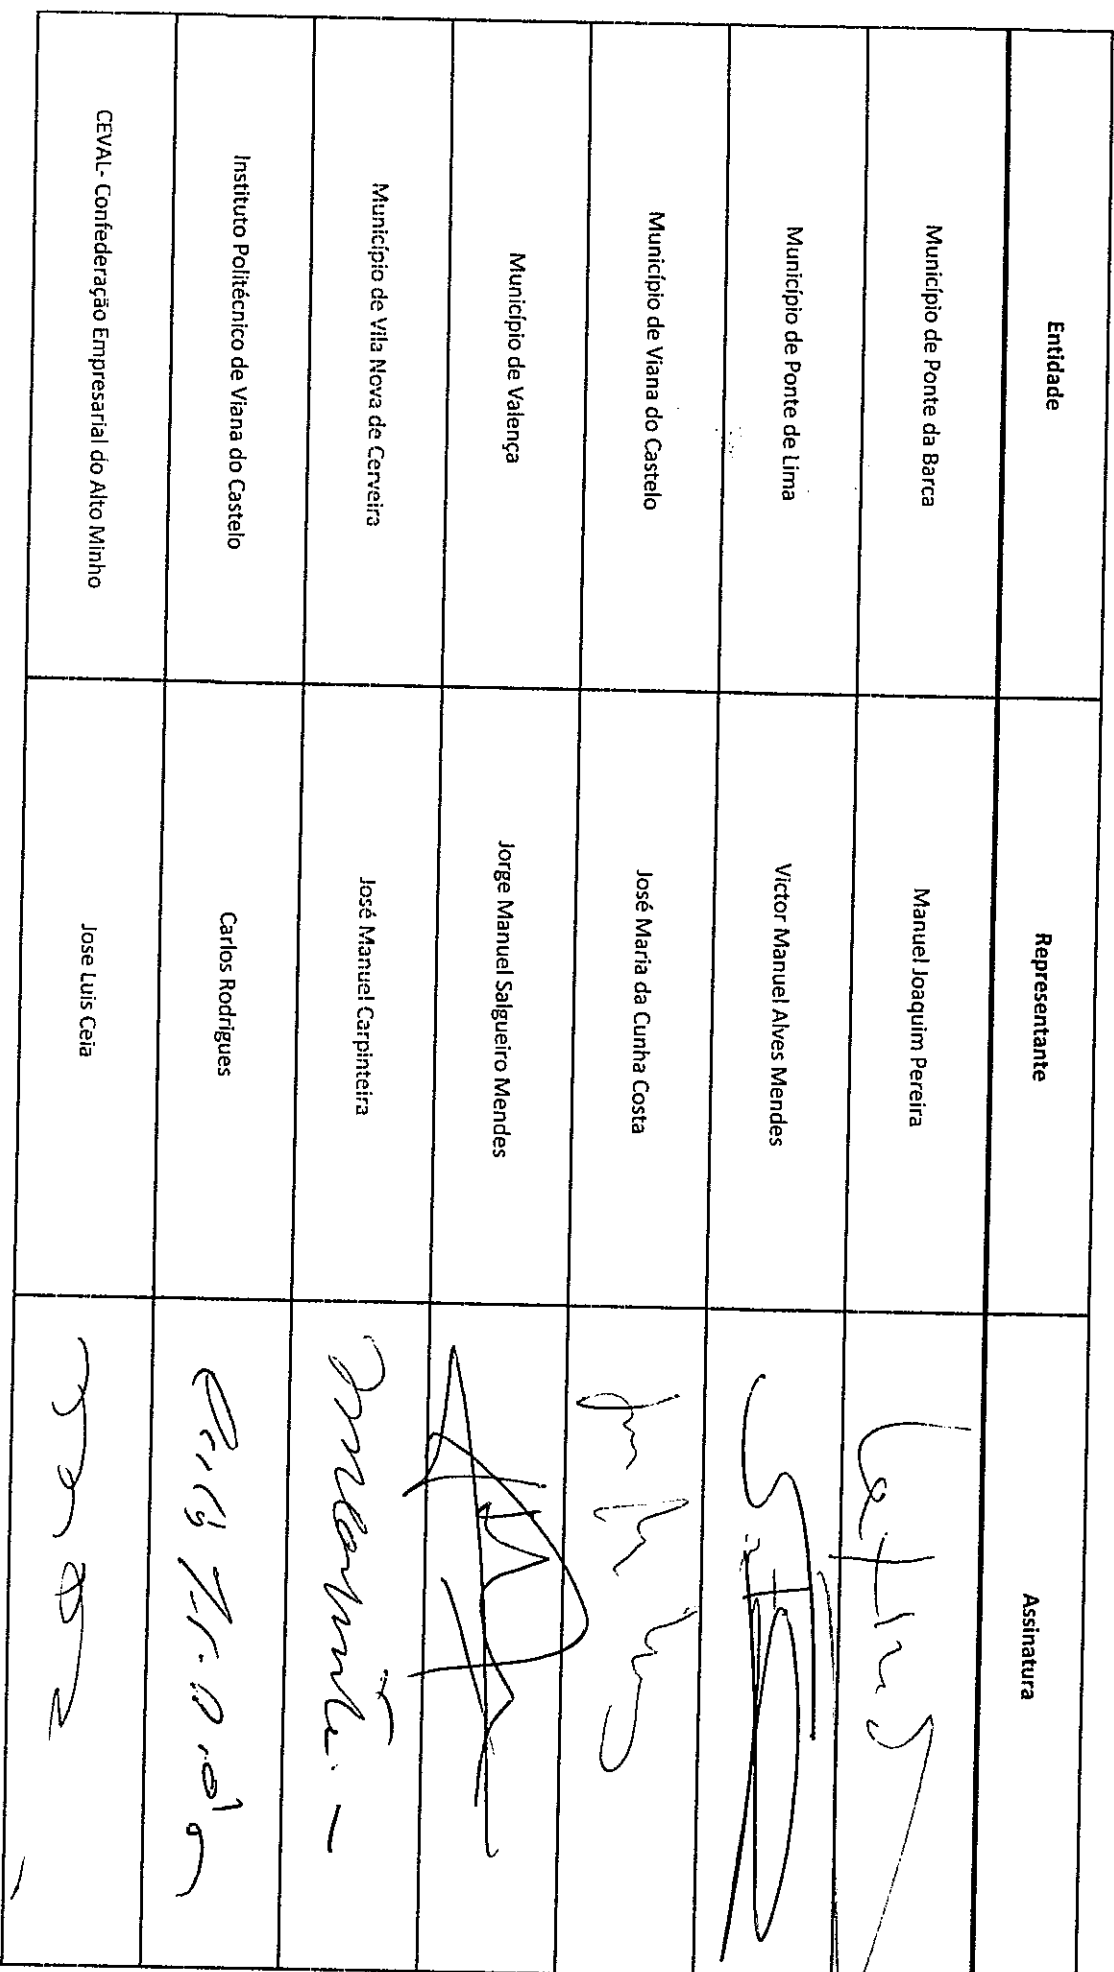 Entidade Representante Assinatura
Município de Ponte da Barca Manuel Joaquim Pereira
Município de Ponte de Lima Victor Manuel Alves Mendes
Município de Viana do Castelo José Maria da Cunha Costa
Município de Valença Jorge Manuel Salgueiro Mendes
Município de Vila Nova de Cerveira José Manuel Carpinteira
Instituto Politécnico de Viana do Castelo Carlos Rodrigues
CEVAL- Confederação Empresarial do Alto Minho Jose Luis Ceia